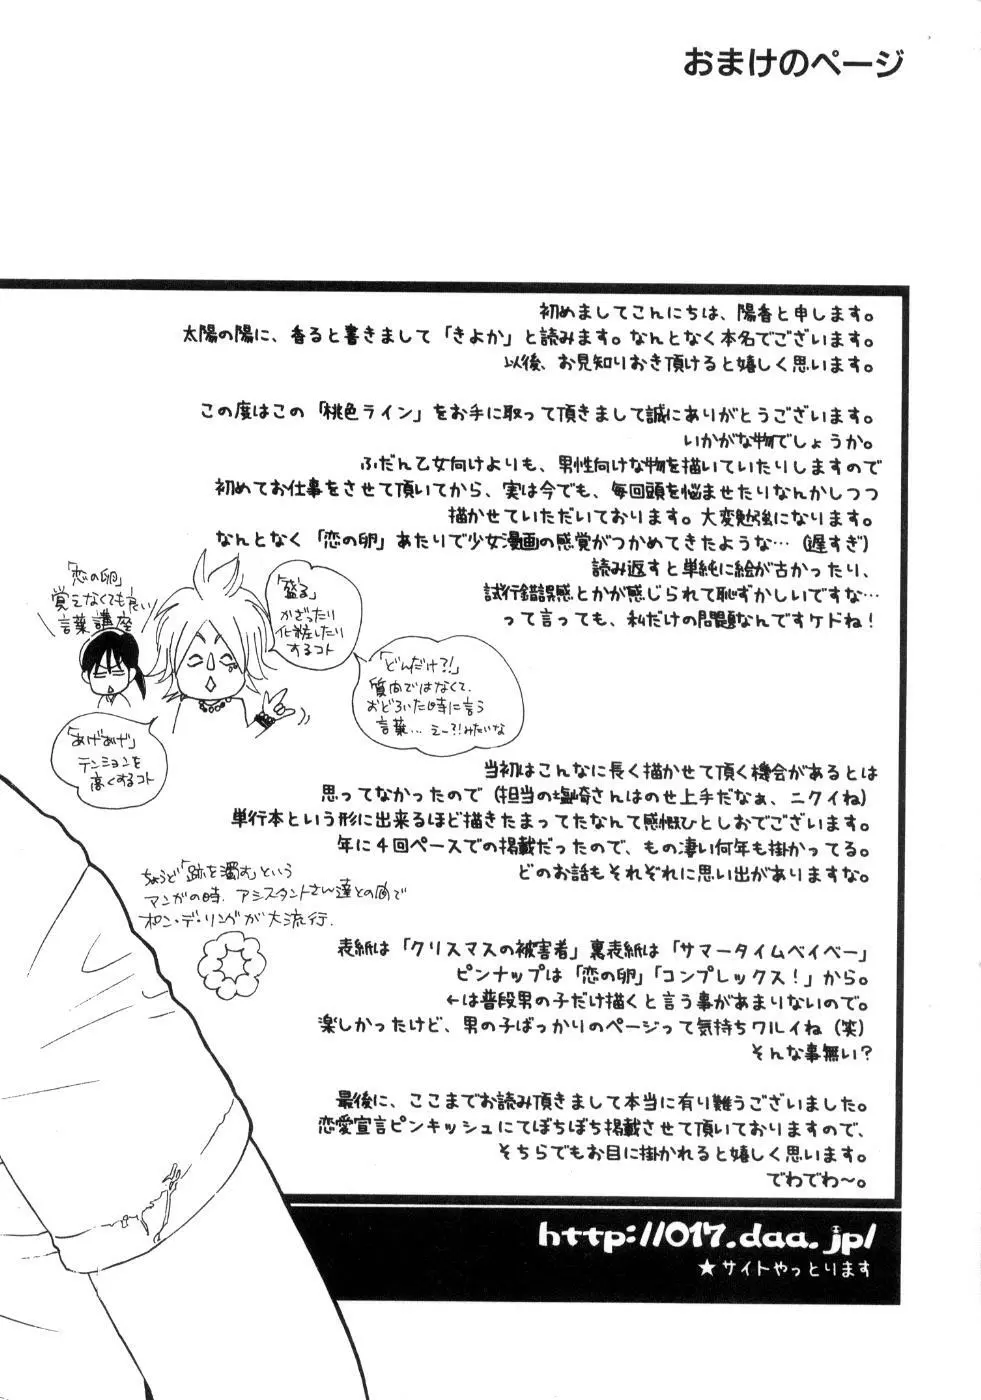 おまけのページ
初めましてこんにちは、陽香と申します。
太陽の陽に、香ると書きまして「きよか」と読みます。なんとなく本名でございます。
以後、お見知りおき頂けると嬉しく思います。
この度はこの「桃色ライン」をお手に取って頂きまして誠にありがとうございます。
いかがな物でしょうか。
ふだん乙女向けよりも、男性向けな物を描いていたりしますので
初めてお仕事をさせて頂いてから、実は今でも、毎回頭を悩ませたりなんかしつつ
描かせていただいております。大変勉強になります。
なんとなく「恋の卵」あたりで少女漫画の感覚がつかめてきたような…（遅すぎ）
読み返すと単純に絵が古かったり、
試行錯誤感とかが感じられて恥ずかしいですな…
って言っても、私だけの問題なんですケドね！
「恋の卵」
覚えなくても良い
言葉講座
「盛る」
かざったり
化粧したり
するコト
「どんだけ？！」
質問ではなくて、
おどろいた時に言う
言葉… えー？！みたいな
「あげあげ」
テンションを
高くするコト
当初はこんなに長く描かせて頂く機会があるとは
思ってなかったので（担当の塩崎さんはのせ上手だなぁ、ニクイね）
単行本という形に出来るほど描きたまってたなんて感慨ひとしおでございます。
年に４回ペースでの掲載だったので、もの凄い何年も掛かってる。
どのお話もそれぞれに思い出がありますな。
ちょうど「跡を濁す」という
マンガの時、アシスタントさん達との間で
ポン・デ・リングが大流行.
表紙は「クリスマスの被害者」裏表紙は「サマータイムベイベー」
ピンナップは「恋の卵」「コンプレックス！」から。
←は普段男の子だけ描くと言う事があまりないので。
楽しかったけど、男の子ばっかりのページって気持ちワルイね（笑）
そんな事無い？
最後に、ここまでお読み頂きまして本当に有り難うございました。
恋愛宣言ピンキッシュにてぼちぼち掲載させて頂いておりますので、
そちらでもお目に掛かれると嬉しく思います。
でわでわ〜。
http://017.daa.jp/
★サイトやっとります